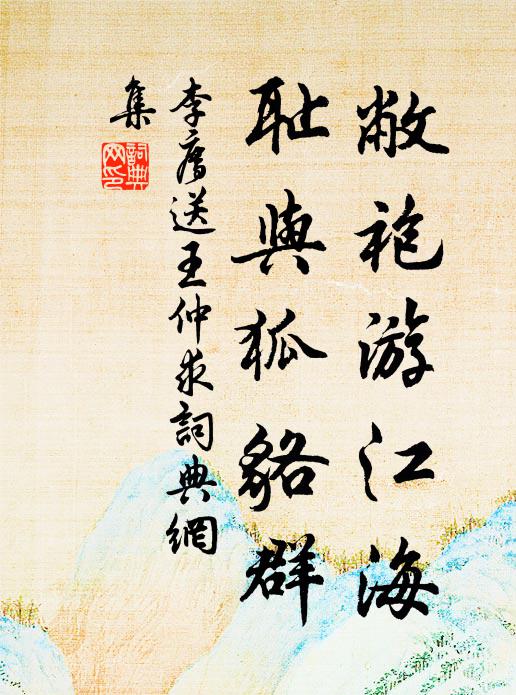 敝袍游江海
耻與狐貉群
李廌送王仲求詞典網
集
詞典網印